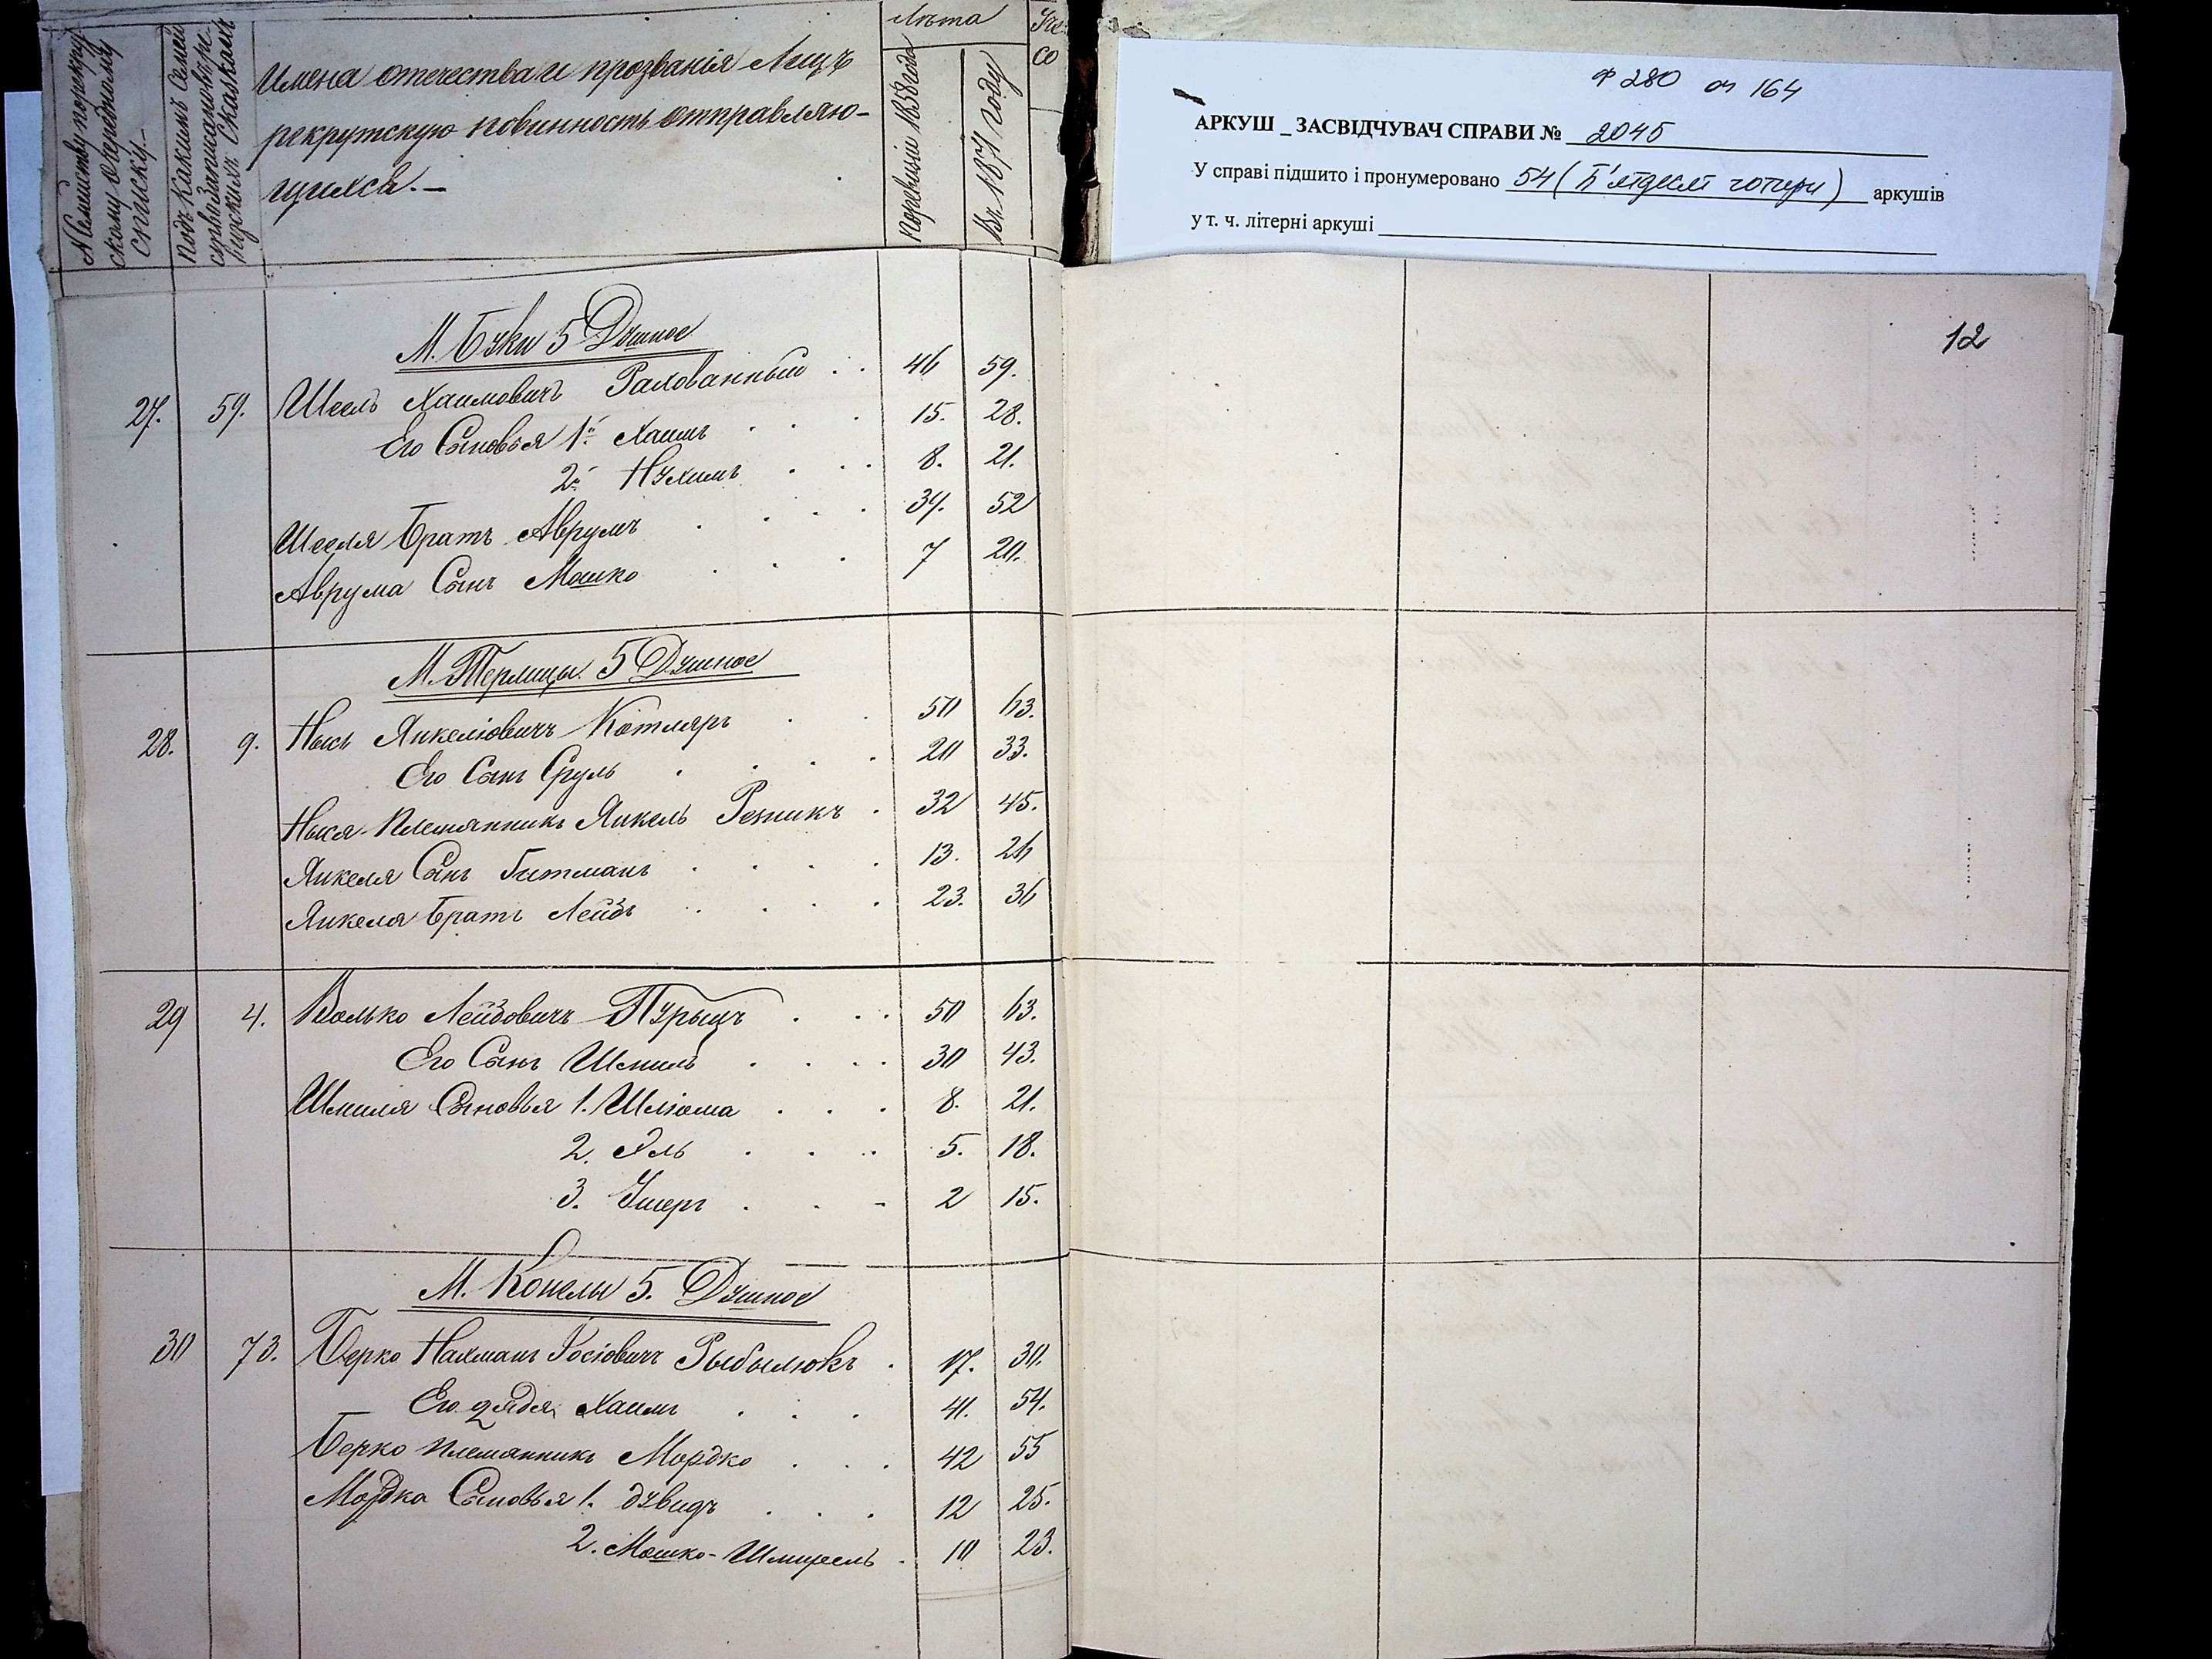 № семейству по рекрут
скому очередному
списку.-
Подъ какимъ №
Имена отечества и прозванія Лицъ
рекрутскую повинность отправляю-
щихся.-
Лѣта
По ревизіи 1858 года
Въ 1871 году
Ф 280 оп 164
АРКУШ _ ЗАСВІДЧУВАЧ СПРАВИ № 2045
У справі підшито і пронумеровано 54 (П'ятдесят чотири) аркушів
у т. ч. літерні аркуші
12
М. Буки 5 Душное
27. 59. Шеель Хаимовичъ Рахованный . . 46 59.
Его Сыновья 1й Хаимъ . . . 15. 28.
2й Нухимъ . . . 8. 21.
Шееля Братъ Аврумъ . . . . 39. 52
Аврума Сынъ Мошко . . . 7 20.
М. Терлицы. 5 Душное
28. 9. Нысь Янкеліовичъ Котляръ . . 50 63.
Его Сынъ Сруль . . . . 20 33.
Ныся Племянникъ Янкель Резникъ . 32 45.
Янкеля Сынъ Гитманъ . . . . 13. 26
Янкеля Братъ Лейбъ . . . . 23. 36
29 4. Волько Лейбовичъ Пурыцъ . . . 50 63.
Его Сынъ Шмиль . . . . 30 43.
Шмиля Сыновья 1. Шліома . . . 8. 21.
2. Эль . . . 5. 18.
3. Ушеръ . . - 2 15.
М. Конелы 5. Душное
30 73. Берко Нахманъ Іосіовичъ Рыбылюкъ . 17. 30.
Его дядя Хаимъ . . . 41. 54.
Берко племянникъ Мордко . . . 42 55
Мордка Сыновья 1. Дувидъ . . . 12 25.
2. Мошко-Шмирель . 10 23.